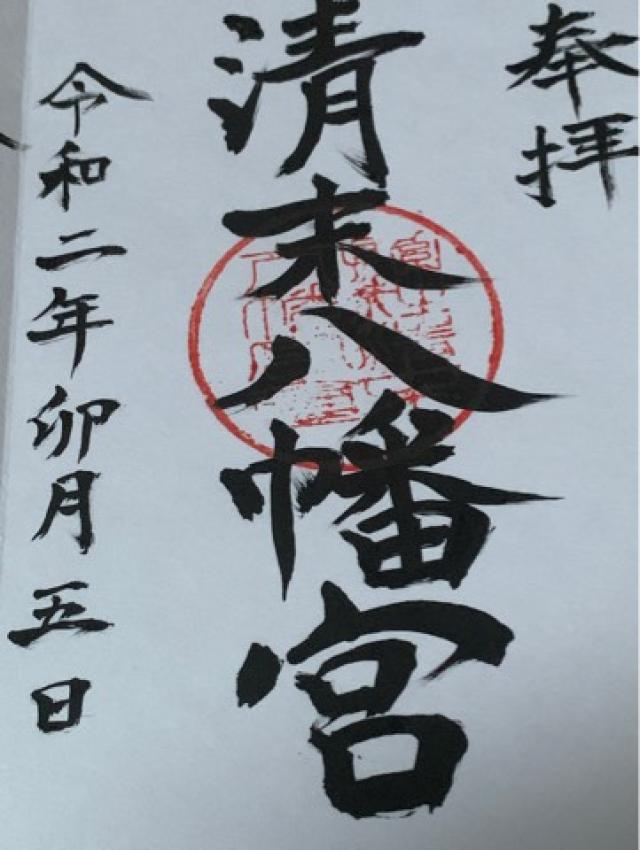 奉拝
清末八幡宮
令和二年卯月五日